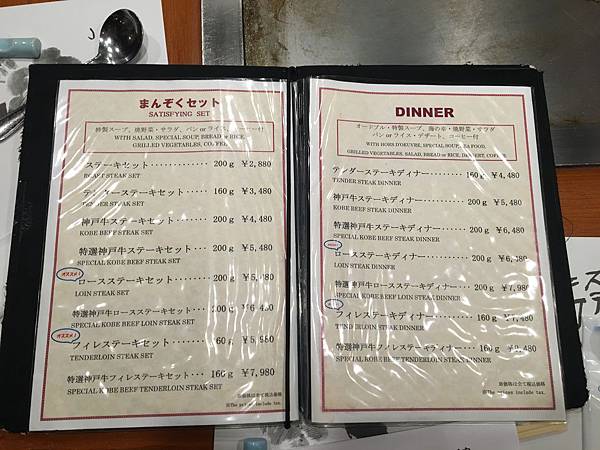 まんぞくセット
SATISFYING SET
特製スープ、焼野菜・サラダ、パン or ライス、コーヒー付
WITH SALAD, SPECIAL SOUP, BREAD or RICE,
GRILLED VEGETABLES, COFFEE
ステーキセット 200g ¥2,880
ROAST STEAK SET
テンダーステーキセット 160g ¥3,480
TENDER STEAK SET
神戸牛ステーキセット 200g ¥4,480
KOBE BEEF STEAK SET
特選神戸牛ステーキセット 200g ¥5,480
SPECIAL KOBE BEEF STEAK SET
オススメ!
ロースステーキセット 200g
LOIN STEAK SET
特選神戸牛ロースステーキセット 200g
SPECIAL KOBE BEEF LOIN STEAK SET
オススメ!
フィレステーキセット
TENDERLOIN STEAK SET
特選神戸牛フィレステーキセット 160g ¥7,980
SPECIAL KOBE BEEF TENDERLOIN STEAK SET
※価格は全て税込価格
※The prices include tax.
DINNER
オードブル・特製スープ、海の幸・焼野菜・サラダ
パン or ライス・デザート、コーヒー付
WITH HORS D'OEUVRE, SPECIAL SOUP, SEA FOOD,
GRILLED VEGETABLES, SALAD, BREAD or RICE, DESSERT, COFFEE
テンダーステーキディナー 160g ¥4,480
TENDER STEAK DINNER
神戸牛ステーキディナー 200g ¥5,480
KOBE BEEF STEAK DINNER
特選神戸牛ステーキディナー 200g ¥6,480
SPECIAL KOBE BEEF STEAK DINNER
ロースステーキディナー 200g ¥6,480
LOIN STEAK DINNER
特選神戸牛ロースステーキディナー 200g ¥7,980
SPECIAL KOBE BEEF LOIN STEAK DINNER
フィレステーキディナー 160g ¥7,480
TENDERLOIN STEAK DINNER
特選神戸牛フィレステーキディナー 160g
SPECIAL KOBE BEEF TENDERLOIN STEAK DINNER
※価格は全て税込価格
※The prices include tax.